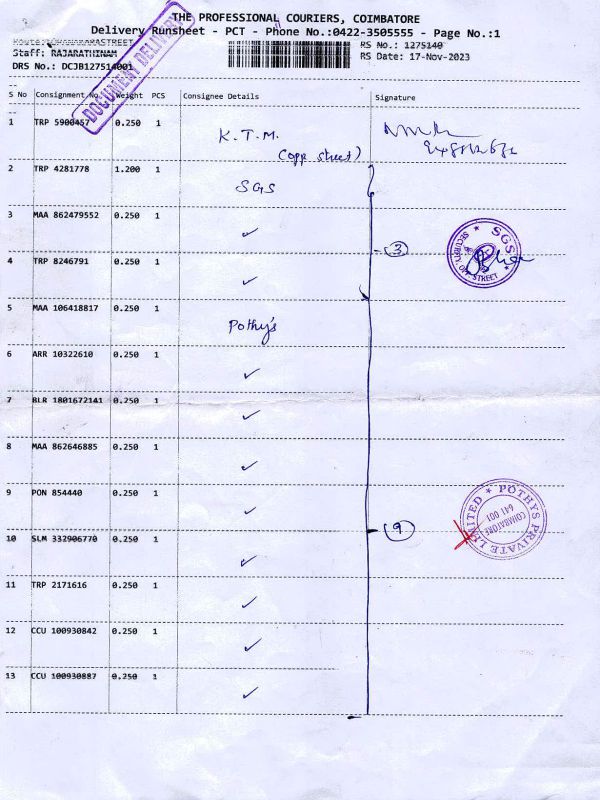 THE PROFESSIONAL COURIERS, COIMBATORE
Delivery Runsheet - PCT - Phone No.:0422-3505555 - Page No.:1
Staff: RAJARATHINAM
RS No.: 1275140
DRS No.: DCJB127514001
RS Date: 17-Nov-2023
DOCUMENT DELIVERY
S No Consignment No. Weight PCS Consignee Details Signature
1 TRP 5900457 0.250 1 K.T.M.
(opp street)
2 TRP 4281778 1.200 1 SGS
3 MAA 862479552 0.250 1 ✓
3
SGS
SECURITY, OPP. STREET
4 TRP 8246791 0.250 1 ✓
5 MAA 106418817 0.250 1 Pothy's
6 ARR 10322610 0.250 1 ✓
7 BLR 1801672141 0.250 1 ✓
8 MAA 862646885 0.250 1 ✓
9 PON 854440 0.250 1 ✓
9
POTHYS PRIVATE LIMITED
COIMBATORE
641 001
10 SLM 332906770 0.250 1 ✓
11 TRP 2171616 0.250 1 ✓
12 CCU 100930842 0.250 1 ✓
13 CCU 100930887 0.250 1 ✓